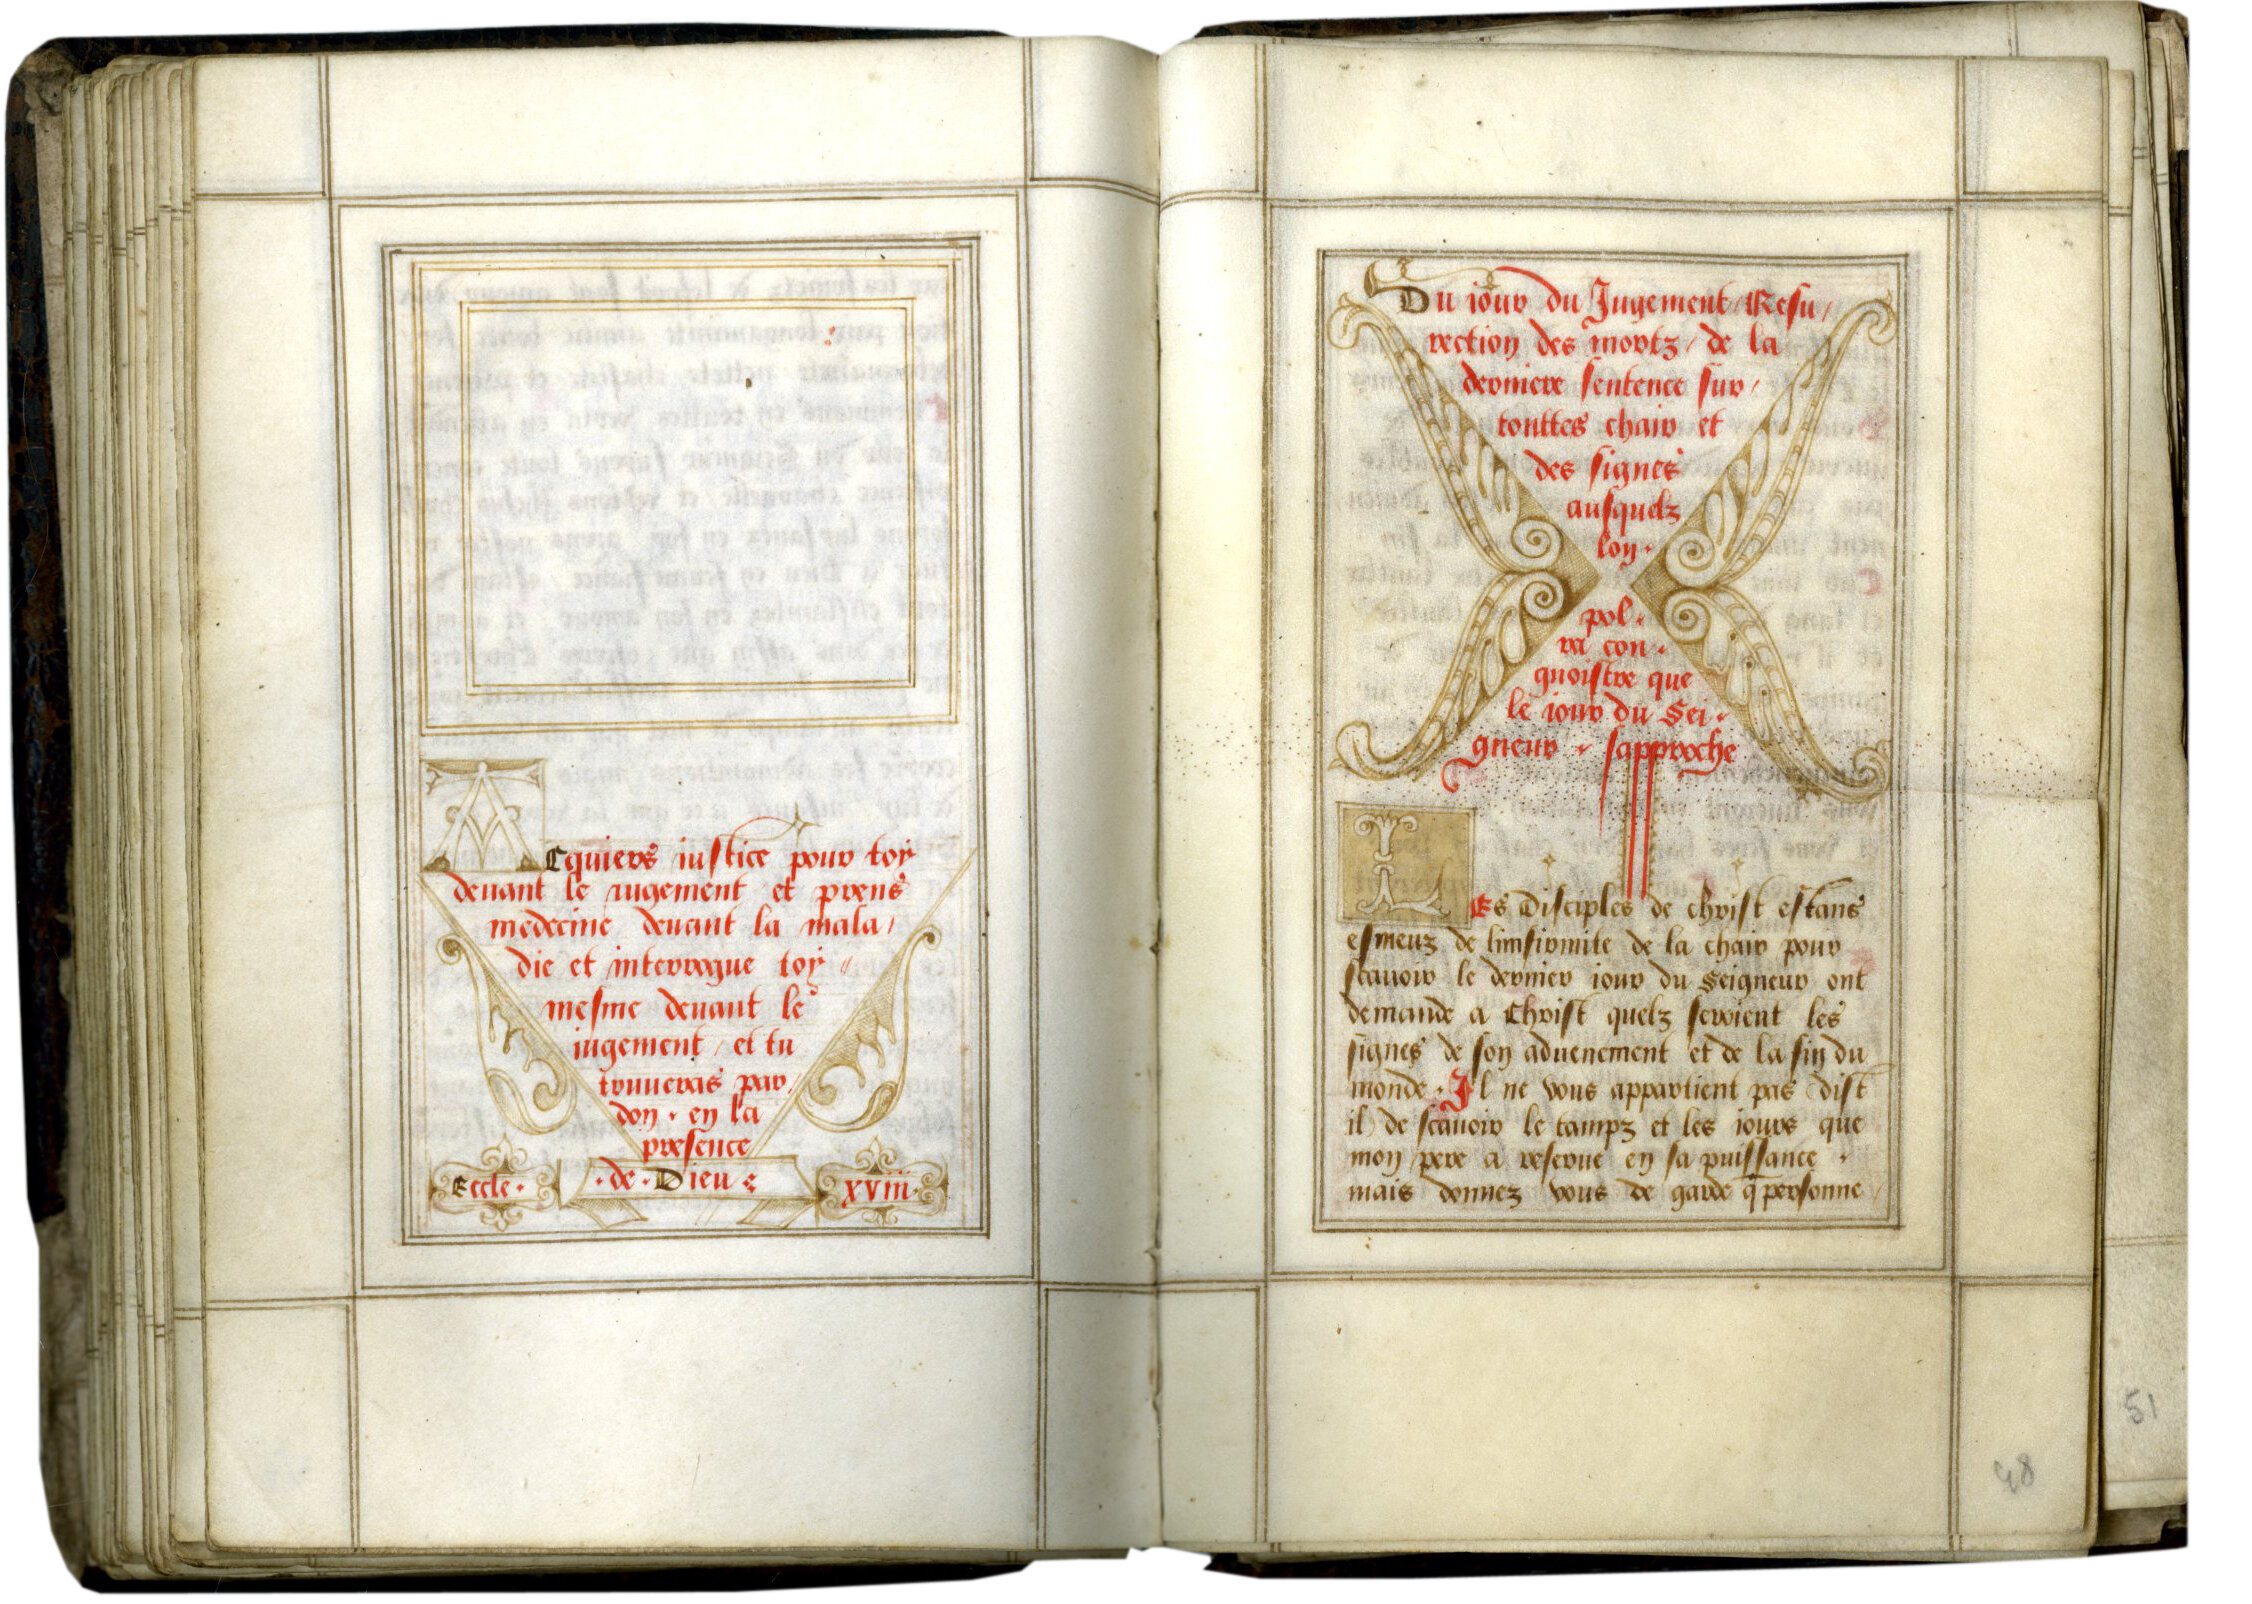 Acquiers iustice pour toy
deuant le iugement et prens
medecine deuant la mala/
die et interrogue toy
mesme deuant le
iugement / et tu
trouueras par/
don · en la
presence
· de · Dieu
Eccle · XVIII
Du iour du Jugement / Resu/
rection des mortz / de la
derniere sentence sur /
touttes chair et
des signes
ausquelz
lon ·
pol ·
ra con ·
gnoistre que
le iour du Sei ·
gneur · sapproche
Les Disciples de christ estans
esmeuz de linfirmite de la chair pour
scauoir le dernier iour du Seigneur ont
demande a Christ quelz seroient les
signes de son aduenement et de la fin du
monde · Il ne vous appartient pas dist
il) de scauoir le tampz et les iours que
mon pere a reserue en sa puissance ·
mais donnez vous de garde q̃ personne
48
51